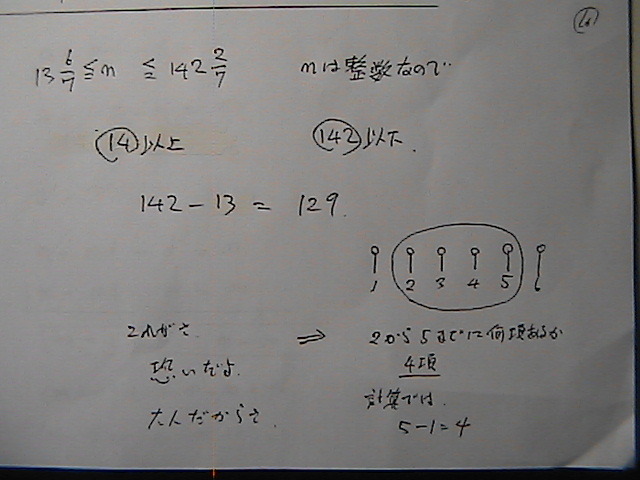 13 6/7 ≦ n ≦ 142 2/7 nは整数なので
14以上 142以下.
142 − 13 = 129.
1 2 3 4 5 6
これがさ. ⇒ 2から5までに何項あるか
恐いだよ. 4項
なんだからさ. 計算では.
5−1=4